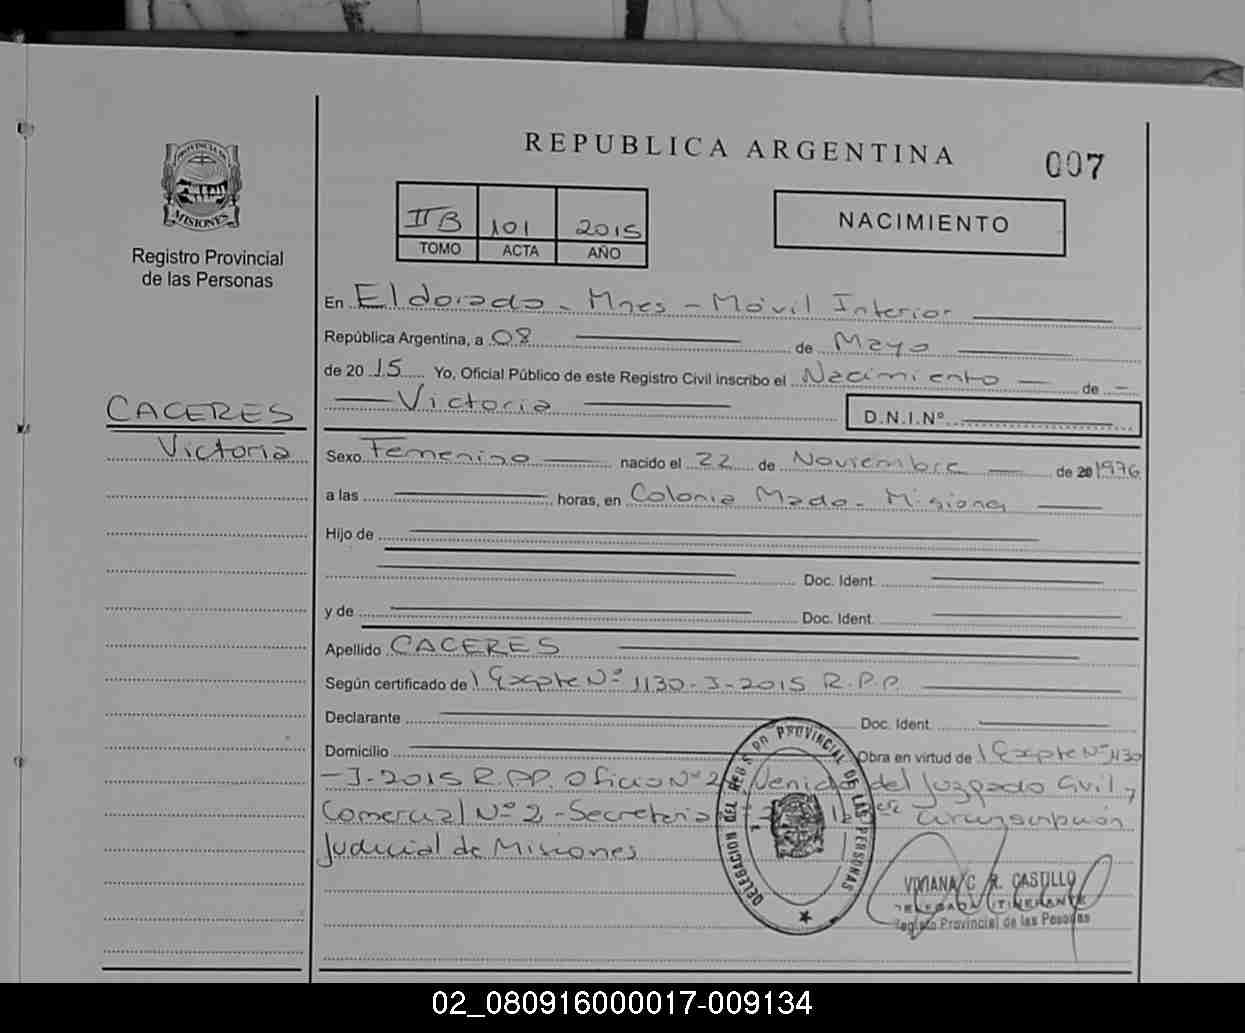 REPUBLICA ARGENTINA
007
PROVINCIA DE
MISIONES
Registro Provincial
de las Personas
IIB 101 2015
TOMO ACTA AÑO
NACIMIENTO
En Eldorado - Mnes - Móvil Interior
República Argentina, a 08 de Mayo
de 2015 Yo, Oficial Público de este Registro Civil inscribo el Nacimiento — de —
Victoria D.N.I.Nº
CACERES
Victoria
Sexo Femenino nacido el 22 de Noviembre de 20 1976
a las horas, en Colonia Mado - Misiones
Hijo de
Doc. Ident.
y de Doc. Ident.
Apellido CACERES
Según certificado de Expte Nº 1130-J-2015 R.P.P.
Declarante Doc. Ident.
Domicilio Obra en virtud de Expte Nº 1130
-J-2015 R.P.P. Oficio Nº 2 Venido del Juzgado Civil y
Comercial Nº 2 - Secretaria Circunscripción
Judicial de Misiones
DELEGACION DEL REGISTRO PROVINCIAL DE LAS PERSONAS
VIVIANA C. R. CASTILLO
DELEGADA ITINERANTE
Registro Provincial de las Personas
02_080916000017-009134